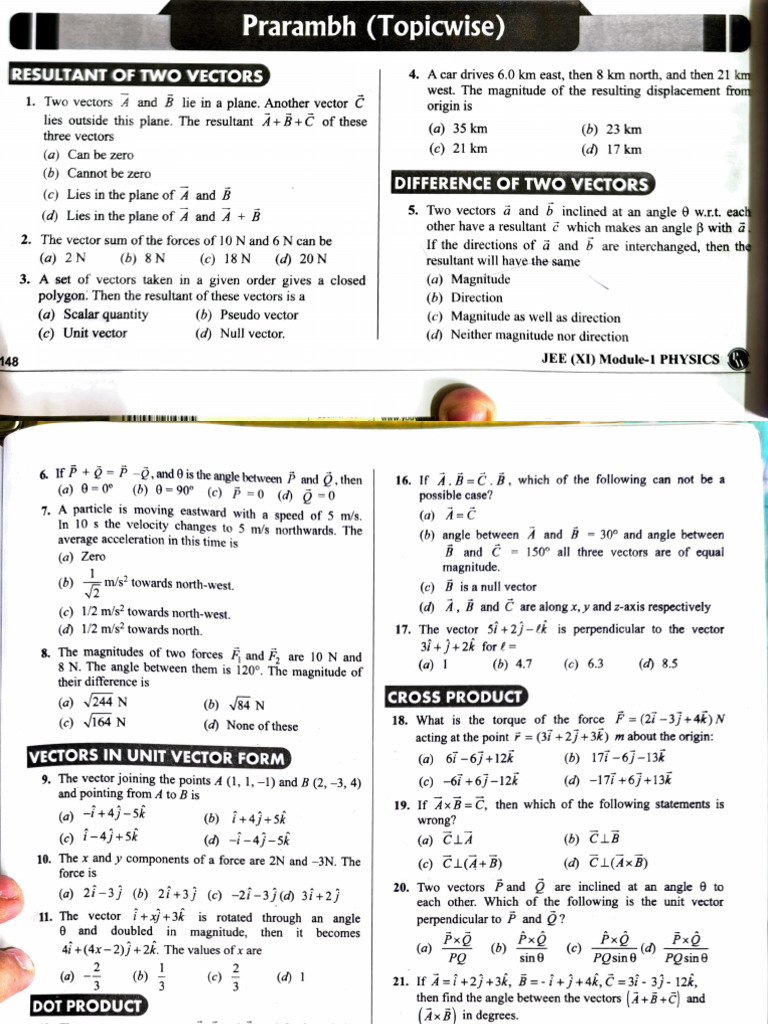 Prarambh (Topicwise)
RESULTANT OF TWO VECTORS
1. Two vectors A⃗ and B⃗ lie in a plane. Another vector C⃗
lies outside this plane. The resultant A⃗ + B⃗ + C⃗ of these
three vectors
(a) Can be zero
(b) Cannot be zero
(c) Lies in the plane of A⃗ and B⃗
(d) Lies in the plane of A⃗ and A⃗ + B⃗
2. The vector sum of the forces of 10 N and 6 N can be
(a) 2 N (b) 8 N (c) 18 N (d) 20 N
3. A set of vectors taken in a given order gives a closed
polygon. Then the resultant of these vectors is a
(a) Scalar quantity (b) Pseudo vector
(c) Unit vector (d) Null vector.
4. A car drives 6.0 km east, then 8 km north, and then 21 km
west. The magnitude of the resulting displacement from
origin is
(a) 35 km (b) 23 km
(c) 21 km (d) 17 km
DIFFERENCE OF TWO VECTORS
5. Two vectors a⃗ and b⃗ inclined at an angle θ w.r.t. each
other have a resultant c⃗ which makes an angle β with a⃗.
If the directions of a⃗ and b⃗ are interchanged, then the
resultant will have the same
(a) Magnitude
(b) Direction
(c) Magnitude as well as direction
(d) Neither magnitude nor direction
148
JEE (XI) Module-1 PHYSICS
6. If P⃗ + Q⃗ = P⃗ − Q⃗, and θ is the angle between P⃗ and Q⃗, then
(a) θ = 0° (b) θ = 90° (c) P⃗ = 0 (d) Q⃗ = 0
7. A particle is moving eastward with a speed of 5 m/s.
In 10 s the velocity changes to 5 m/s northwards. The
average acceleration in this time is
(a) Zero
(b) 1/√2 m/s² towards north-west.
(c) 1/2 m/s² towards north-west.
(d) 1/2 m/s² towards north.
8. The magnitudes of two forces F⃗₁ and F⃗₂ are 10 N and
8 N. The angle between them is 120°. The magnitude of
their difference is
(a) √244 N (b) √84 N
(c) √164 N (d) None of these
VECTORS IN UNIT VECTOR FORM
9. The vector joining the points A (1, 1, −1) and B (2, −3, 4)
and pointing from A to B is
(a) −î + 4ĵ − 5k̂ (b) î + 4ĵ + 5k̂
(c) î − 4ĵ + 5k̂ (d) −î − 4ĵ − 5k̂
10. The x and y components of a force are 2N and −3N. The
force is
(a) 2î − 3ĵ (b) 2î + 3ĵ (c) −2î − 3ĵ (d) 3î + 2ĵ
11. The vector î + xĵ + 3k̂ is rotated through an angle
θ and doubled in magnitude, then it becomes
4î + (4x − 2)ĵ + 2k̂. The values of x are
(a) −2/3 (b) 1/3 (c) 2/3 (d) 1
DOT PRODUCT
16. If A⃗ . B⃗ = C⃗ . B⃗, which of the following can not be a
possible case?
(a) A⃗ = C⃗
(b) angle between A⃗ and B⃗ = 30° and angle between
B⃗ and C⃗ = 150° all three vectors are of equal
magnitude.
(c) B⃗ is a null vector
(d) A⃗, B⃗ and C⃗ are along x, y and z-axis respectively
17. The vector 5î + 2ĵ − ℓk̂ is perpendicular to the vector
3î + ĵ + 2k̂ for ℓ =
(a) 1 (b) 4.7 (c) 6.3 (d) 8.5
CROSS PRODUCT
18. What is the torque of the force F⃗ = (2i⃗ − 3j⃗ + 4k⃗) N
acting at the point r⃗ = (3i⃗ + 2j⃗ + 3k⃗) m about the origin:
(a) 6i⃗ − 6j⃗ + 12k⃗ (b) 17i⃗ − 6j⃗ − 13k⃗
(c) −6i⃗ + 6j⃗ − 12k⃗ (d) −17i⃗ + 6j⃗ + 13k⃗
19. If A⃗ × B⃗ = C⃗, then which of the following statements is
wrong?
(a) C⃗ ⊥ A⃗ (b) C⃗ ⊥ B⃗
(c) C⃗ ⊥ (A⃗ + B⃗) (d) C⃗ ⊥ (A⃗ × B⃗)
20. Two vectors P⃗ and Q⃗ are inclined at an angle θ to
each other. Which of the following is the unit vector
perpendicular to P⃗ and Q⃗?
(a) P⃗×Q⃗/PQ (b) P̂×Q̂/sin θ (c) P̂×Q̂/PQ sin θ (d) P⃗×Q̂/PQ sin θ
21. If A⃗ = î + 2ĵ + 3k̂, B⃗ = -î + ĵ + 4k̂, C⃗ = 3î - 3ĵ - 12k̂,
then find the angle between the vectors (A⃗ + B⃗ + C⃗) and
(A⃗ × B⃗) in degrees.